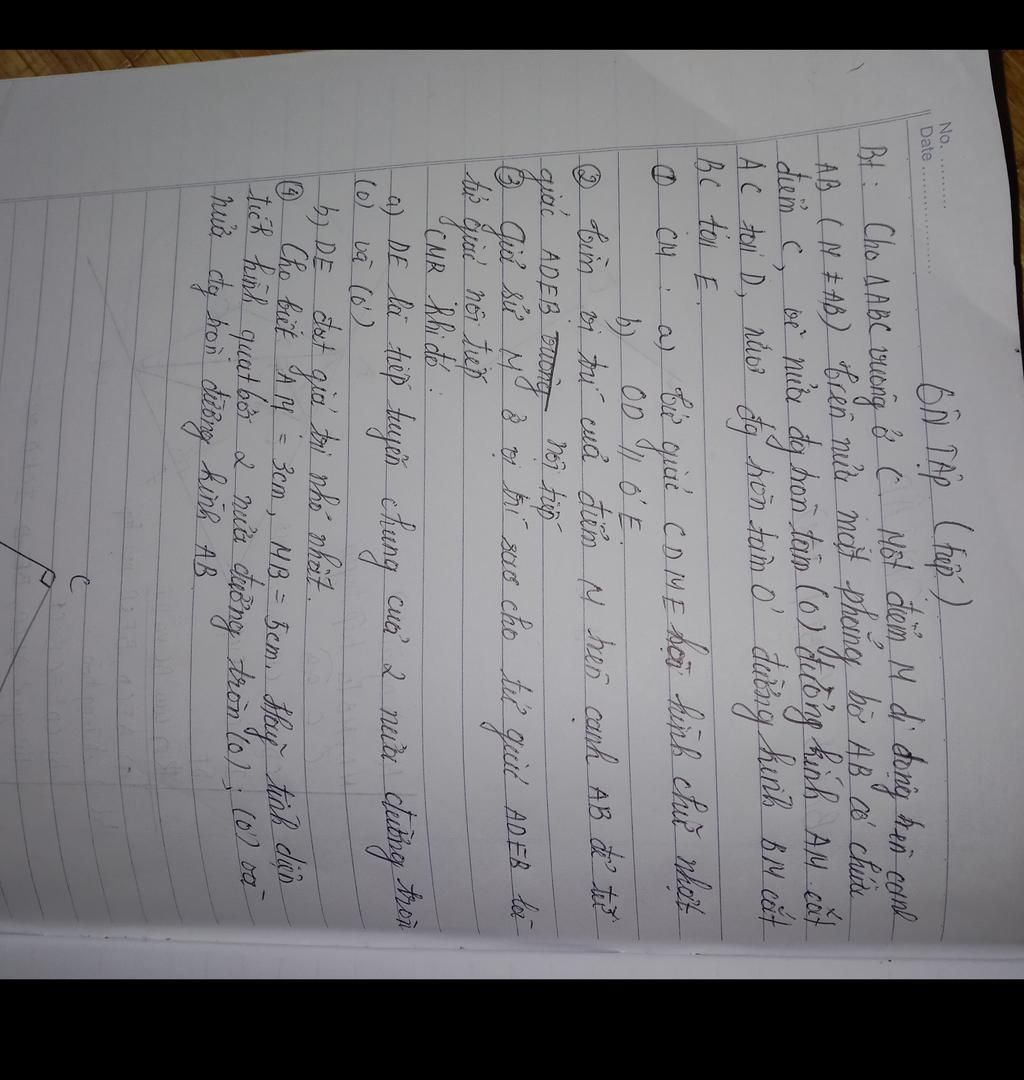 No. ............
Date ................
ÔN TẬP (tiếp)
Bt: Cho ΔABC vuông ở C. Một điểm M di động trên cạnh
AB (M ≠ AB) trên nửa mặt phẳng bờ AB có chứa
điểm C, vẽ nửa đg tròn tâm (O) đường kính AM cắt
AC tại D, nửa đg tròn tâm O' đường kính BM cắt
BC tại E.
① CM: a) tứ giác CDME hình chữ nhật
b) OD // O'E
② tìm vị trí của điểm M trên cạnh AB để tứ
giác ADEB nội tiếp
③ Giả sử M ở vị trí sao cho tứ giác ADEB là
tứ giác nội tiếp
CMR khi đó:
a) DE là tiếp tuyến chung của 2 nửa đường tròn
(O) và (O')
b) DE đạt giá trị nhỏ nhất.
④ Cho biết AM = 3cm, MB = 5cm. Hãy tính diện
tích hình quạt bởi 2 nửa đường tròn (O); (O') và
nửa đg tròn đường kính AB
C